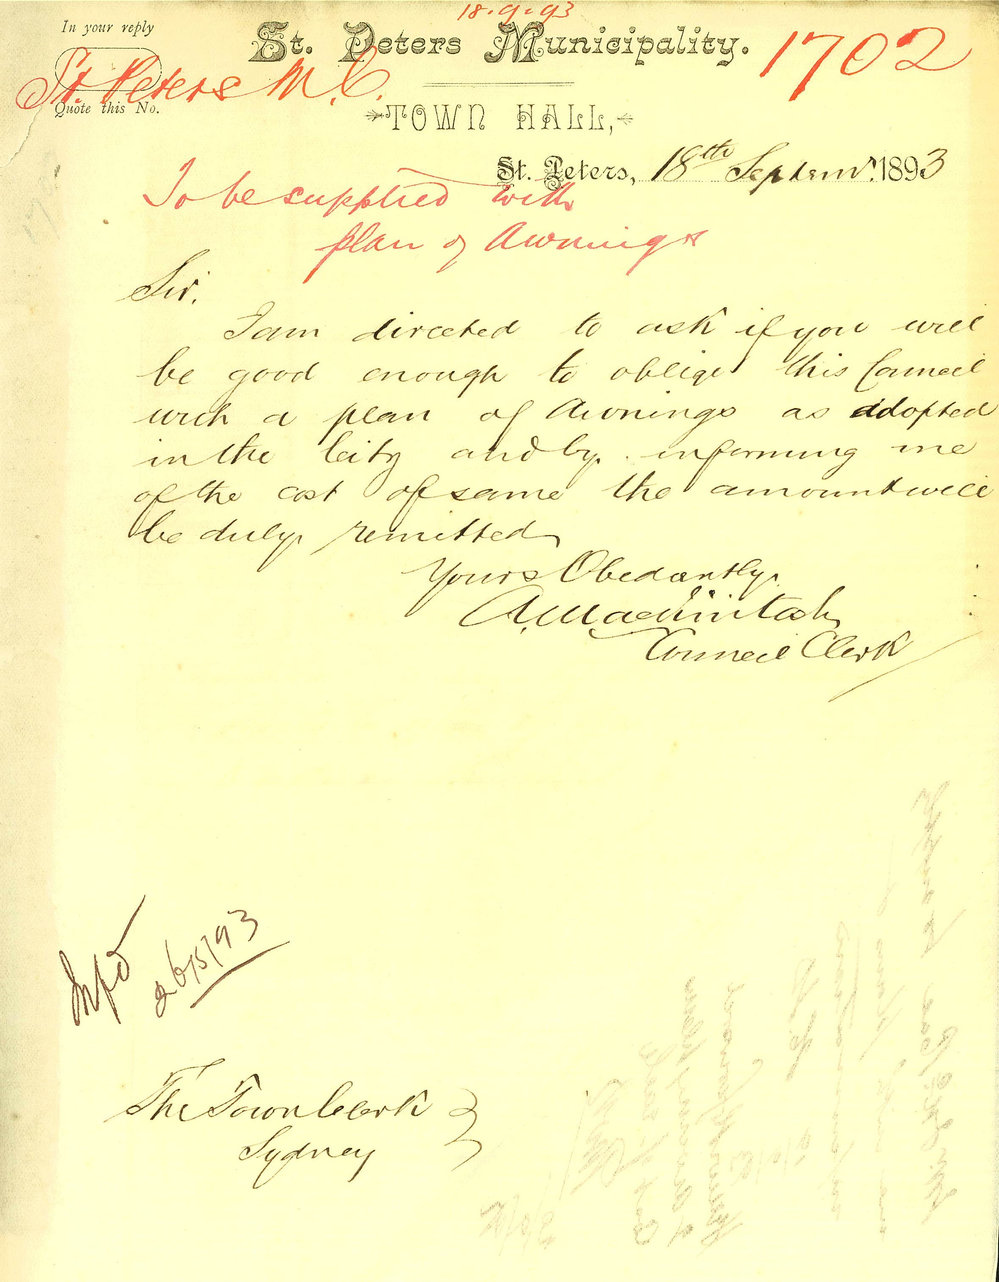 18.9.93
In your reply
St. Peters Municipality.
1702
St. Peters M.C.
Quote this No.
TOWN HALL,
St. Peters, 18th Septemr. 1893
To be supplied with
plan of Awnings
Sir,
I am directed to ask if you will
be good enough to oblige this Council
with a plan of Awnings as adopted
in the City and by informing me
of the cost of same the amount will
be duly remitted
Yours Obediantly
A. Mackintosh
Council Clerk
The Town Clerk
Sydney